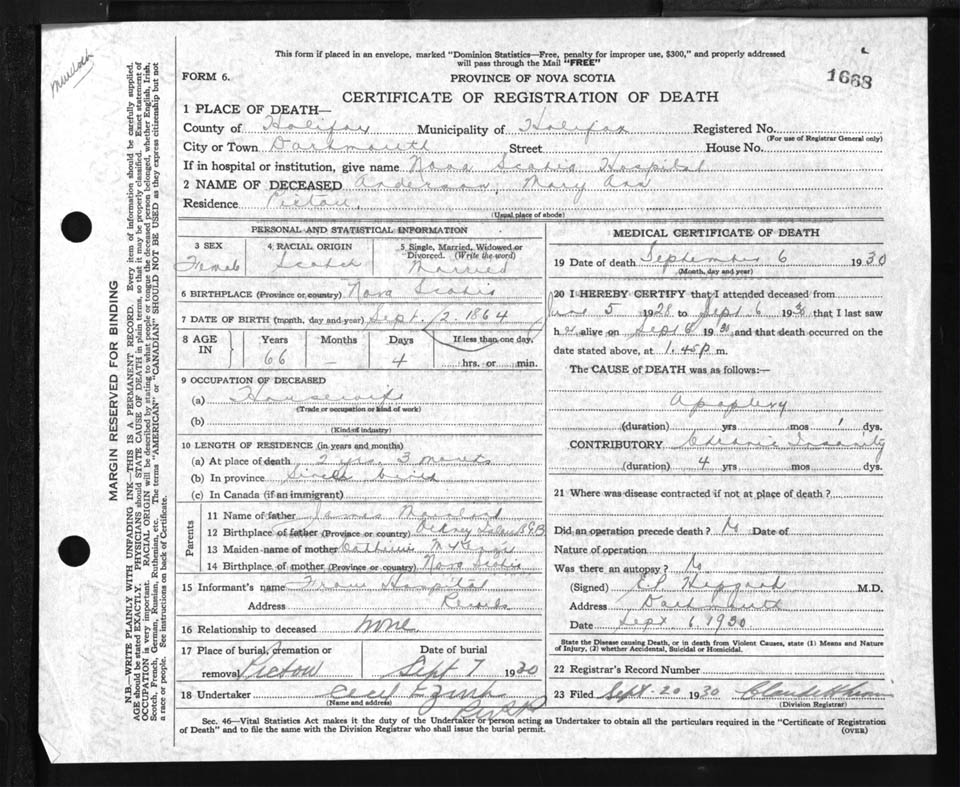 This form if placed in an envelope, marked "Dominion Statistics—Free, penalty for improper use, $300," and properly addressed
will pass through the Mail "FREE"
FORM 6.
PROVINCE OF NOVA SCOTIA
1668
CERTIFICATE OF REGISTRATION OF DEATH
1 PLACE OF DEATH—
County of Halifax Municipality of Halifax Registered No.
(For use of Registrar General only)
City or Town Dartmouth Street House No.
If in hospital or institution, give name Nova Scotia Hospital
2 NAME OF DECEASED Anderson, Mary Ann
Residence Pictou,
(Usual place of abode)
PERSONAL AND STATISTICAL INFORMATION
3 SEX
Female
4 RACIAL ORIGIN
Scotch
5 Single, Married, Widowed or
Divorced. (Write the word)
Married
6 BIRTHPLACE (Province or country) Nova Scotia
7 DATE OF BIRTH (month, day and year) Sept. 2. 1864
8 AGE IN
Years
66
Months
—
Days
4
If less than one day,
hrs. or min.
9 OCCUPATION OF DECEASED
(a) Housewife
(Trade or occupation or kind of work)
(b)
(Kind of industry)
10 LENGTH OF RESIDENCE (in years and months)
(a) At place of death 2 yrs. 3 months
(b) In province Since birth
(c) In Canada (if an immigrant)
Parents
11 Name of father James
12 Birthplace of father (Province or country)
13 Maiden name of mother
14 Birthplace of mother (Province or country) Nova Scotia
15 Informant's name From Hospital
Address Records
16 Relationship to deceased none
17 Place of burial, cremation or
removal Pictou
Date of burial
Sept 7 1930
18 Undertaker Cecil
(Name and address)
MEDICAL CERTIFICATE OF DEATH
19 Date of death September 6 1930
(Month, day and year)
20 I HEREBY CERTIFY that I attended deceased from
5 1928 to Sept 6 1930 that I last saw
h er alive on Sept 6 1930 and that death occurred on
date stated above, at 1.45 p m.
The CAUSE OF DEATH was as follows:—
Apoplexy
(duration) yrs mos 1 dys.
CONTRIBUTORY Insanity
(duration) 4 yrs mos dys.
21 Where was disease contracted if not at place of death?
Did an operation precede death? No Date of
Nature of operation
Was there an autopsy? No
(Signed) M.D.
Address Dartmouth
Date Sept 6, 1930
State the Disease causing Death, or in death from Violent Causes, state (1) Means and Nature
of Injury, (2) whether Accidental, Suicidal or Homicidal.
22 Registrar's Record Number
23 Filed Sept-20 1930
(Division Registrar)
Sec. 46—Vital Statistics Act makes it the duty of the Undertaker or person acting as Undertaker to obtain all the particulars required in the "Certificate of Registration
of Death" and to file the same with the Division Registrar who shall issue the burial permit.
(OVER)
MARGIN RESERVED FOR BINDING
N.B.—WRITE PLAINLY WITH UNFADING INK—THIS IS A PERMANENT RECORD. Every item of information should be carefully supplied.
AGE should be stated EXACTLY. PHYSICIANS should STATE CAUSE OF DEATH in plain terms, so that it may be properly classified. Exact statement of
OCCUPATION is very important. RACIAL ORIGIN will be described by stating to what people or tongue the deceased person belonged, whether English, Irish,
Scotch, French, German, Russian, Ruthenian, etc. The terms "AMERICAN" or "CANADIAN" SHOULD NOT BE USED as they express citizenship but not
a race or people. See instructions on back of Certificate.